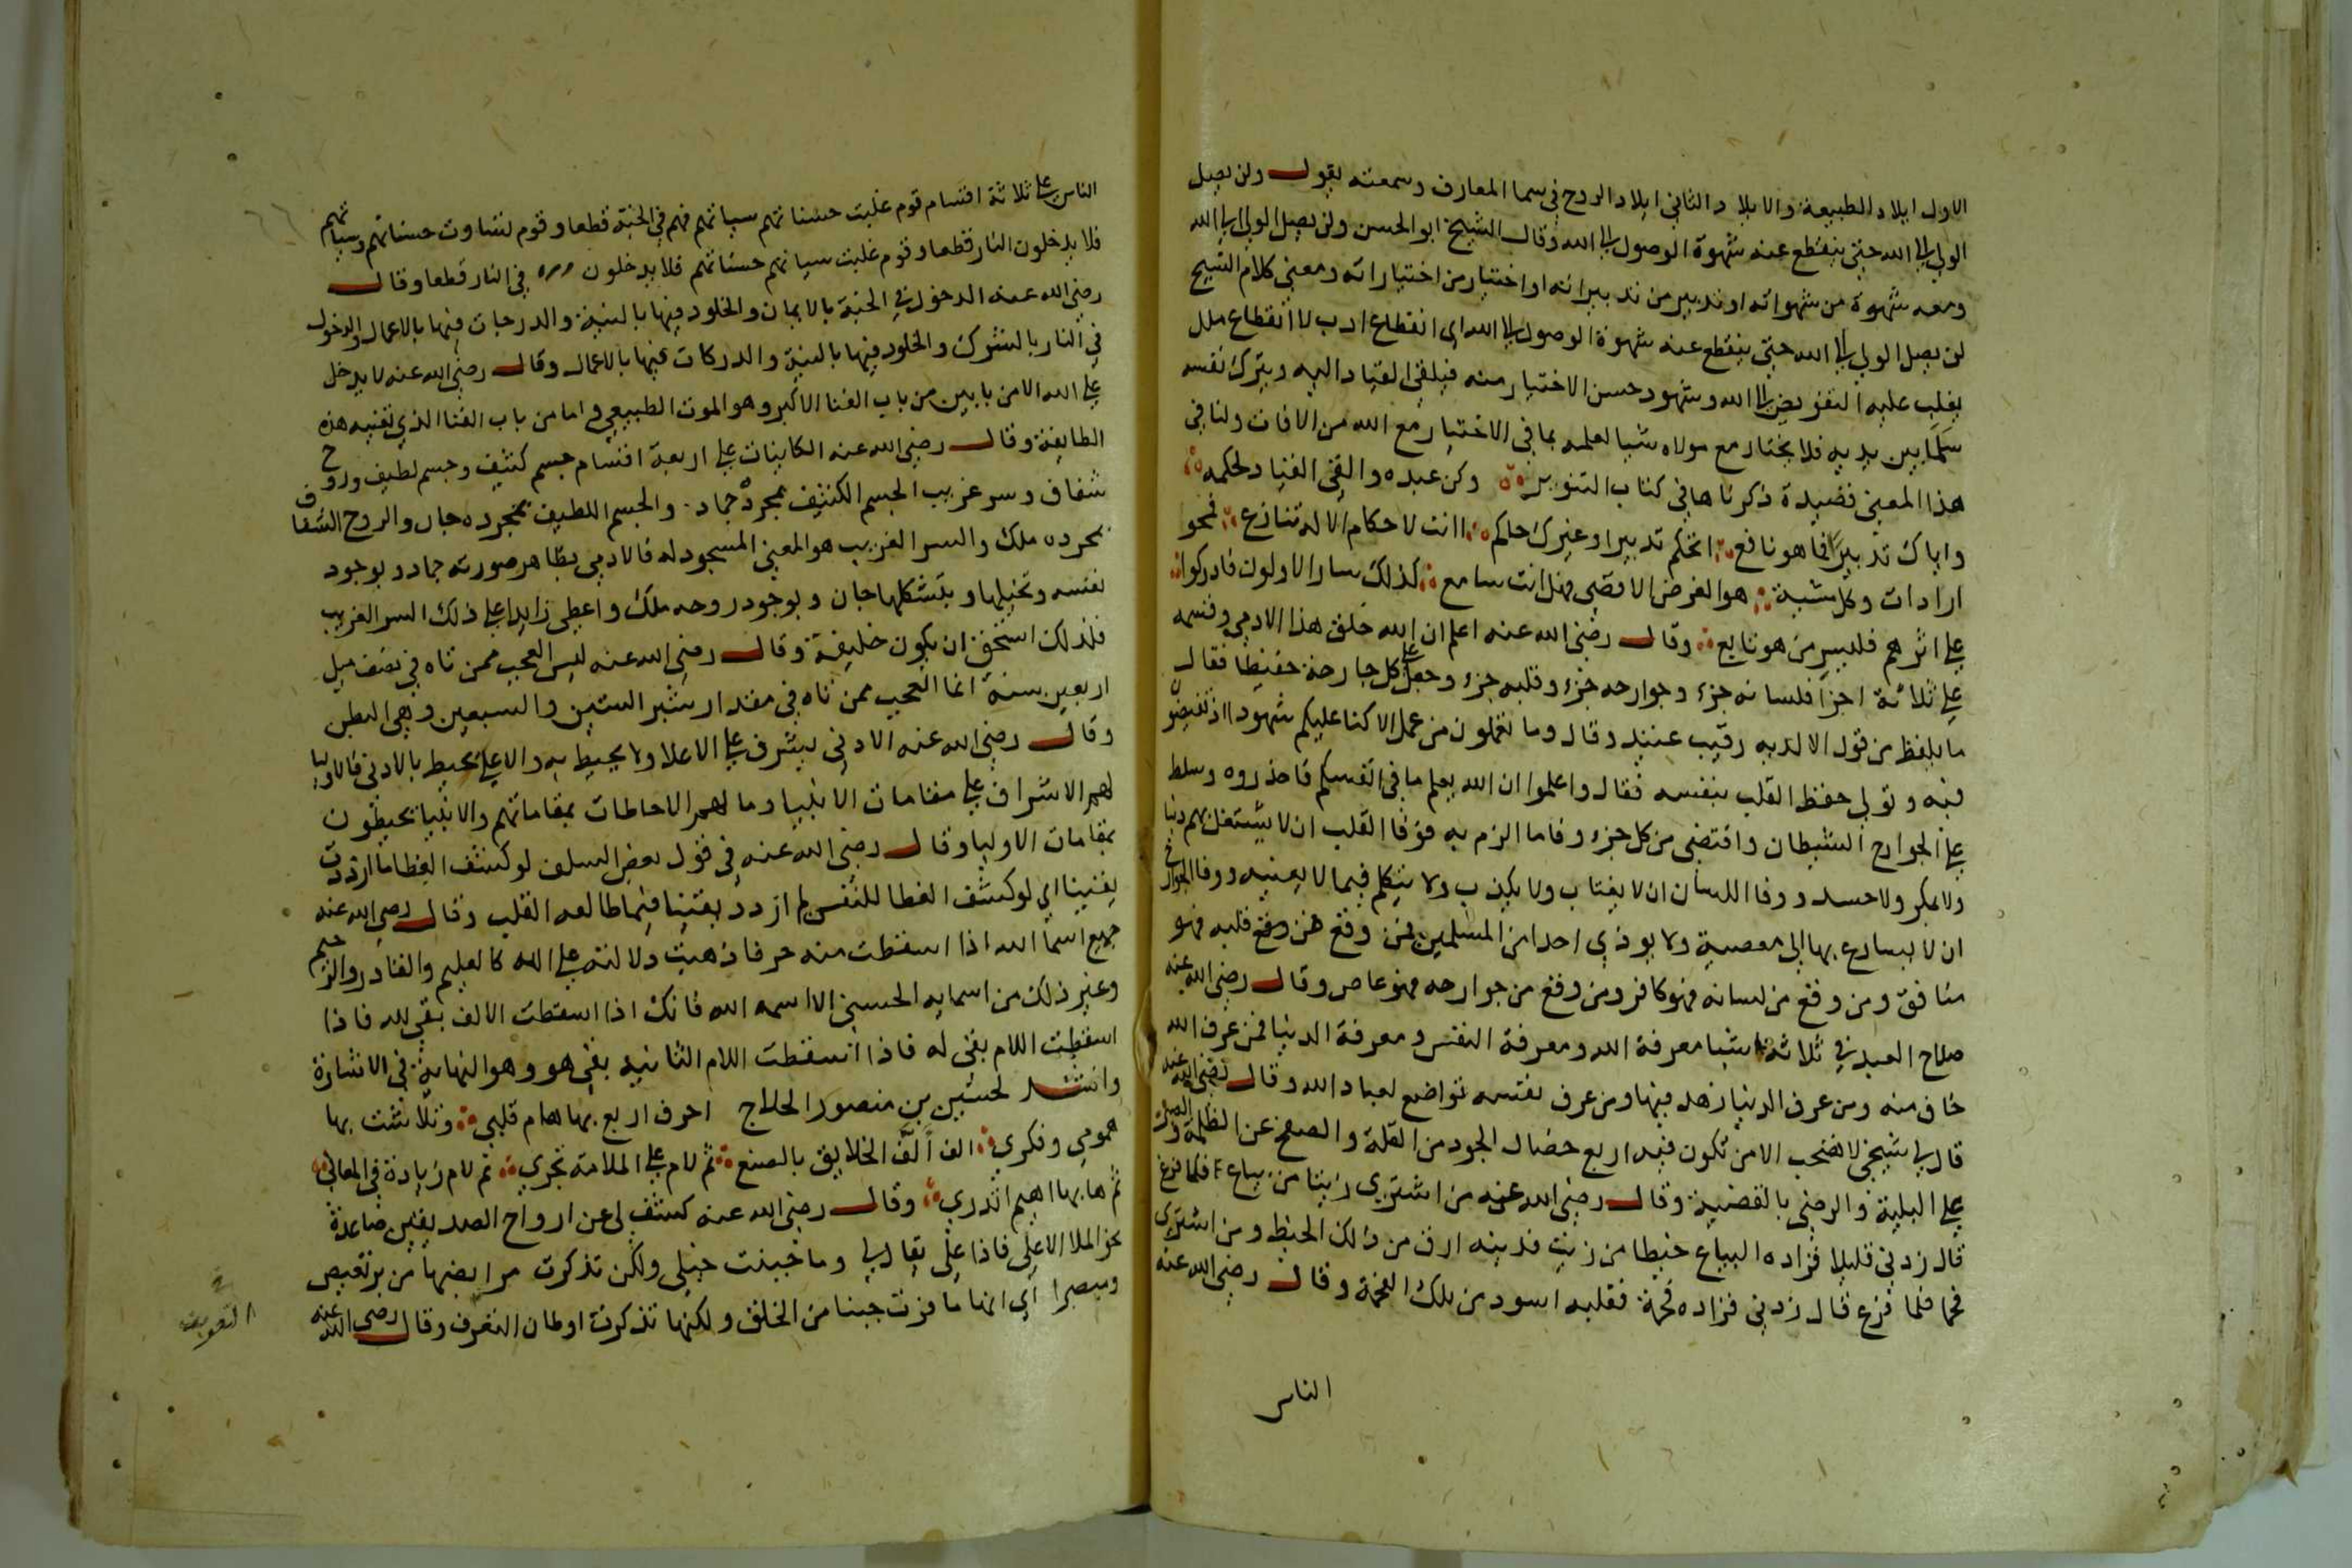 الاول ايلاد الطبيعة والايلاد الثاني ايلاد الروح في سما المعارف وسمعته يقول ولن يصل
الولي الى الله حتى ينقطع عنه شهوة الوصول الى الله وقال الشيخ ابو الحسن ولن يصل الولي الى الله
ومعه شهوة من شهواته او تدبير من تدبيراته او اختيار من اختياراته ومعنى كلام الشيخ
لن يصل الولي الى الله حتى ينقطع عنه شهوة الوصول الى الله اى انقطاع ادب لا انقطاع ملل
يغلب عليه التفويض الى الله وشهود حسن الاختيار منه فيلقى القياد اليه ويترك نفسه
سلما بين يديه فلا يختار مع مولاه شيا لعلمه بما في الاختيار مع الله من الافات ولنا في
هذا المعنى قصيدة ذكرناها في كتاب التنوير وكن عبده والقى القياد لحكمه
واياك تدبيرا فما هو نافع اتحكم تدبيرا وغيرك حاكم اانت لاحكام الاله تنازع فمحو
ارادات وكل مشية هو الغرض الاقصى فهل انت سامع كذلك سار الاولون فادركوا
على اثرهم فليسر من هو تابع وقال رضى الله عنه اعلم ان الله خلق هذا الادمي وقسمه
على ثلاثة اجزا فلسانه جزء وجوارحه جزء وقلبه جزء وجعل على كل جارحة حفيظا فقال
ما يلفظ من قول الا لديه رقيب عتيد وقال وما تعملون من عمل الا كنا عليكم شهودا اذ تفيضون
فيه وتولى حفظ القلب بنفسه فقال واعلموا ان الله يعلم ما في انفسكم فاحذروه وسلط
على الجوارح الشيطان واقتضى من كل جزء وفا ما الزم به فوفا القلب ان لا يشتغل بهم دنيا
ولا مكر ولا حسد ووفا اللسان ان لا يغتاب ولا يكذب ولا يتكلم فيما لا يعنيه ووفا الجوارح
ان لا يسارع بها الى معصية ولا يوذي احدا من المسلمين فمن وقع من قلبه فهو
منافق ومن وقع من لسانه فهو كافر ومن وقع من جوارحه فهو عاص وقال رضى الله عنه
صلاح العبد في ثلاثة اشيا معرفة الله ومعرفة النفس ومعرفة الدنيا فمن عرف الله
خاف منه ومن عرف الدنيا زهد فيها ومن عرف نفسه تواضع لعباد الله وقال رضى الله عنه
قال لي شيخي لا تصحب الا من تكون فيه اربع خصال الجود من القلة والصفح عن الظلمة والصبر
على البلية والرضى بالقضية وقال رضى الله عنه من اشترى زيتا من بياع فلما فرغ
قال زدني قليلا فزاده البياع خيطا من زيت فدينه ارق من ذلك الخيط ومن اشترى
فحما فلما فرغ قال زدني فزاده فحمة فقلبه اسود من تلك الفحمة وقال رضى الله عنه
الناس
الناس على ثلاثة اقسام قوم غلبت حسناتهم سياتهم فهم في الجنة قطعا وقوم تساوت حسناتهم وسياتهم
فلا يدخلون النار قطعا وقوم غلبت سياتهم حسناتهم فلا يدخلون في النار قطعا وقال
رضى الله عنه الدخول في الجنة بالايمان والخلود فيها بالنية والدرجات فيها بالاعمال والدخول
في النار بالشرك والخلود فيها بالنية والدركات فيها بالاعمال وقال رضى الله عنه لا يدخل
على الله الا من بابين من باب الفنا الاكبر وهو الموت الطبيعي واما من باب الفنا الذي تعنيه هذه
الطايفة وقال رضى الله عنه الكاينات على اربعة اقسام جسم كثيف وجسم لطيف وروح
شفاف وسر غريب الجسم الكثيف بمجرده جماد والجسم اللطيف بمجرده جان والروح الشفاف
بمجرده ملك والسر الغريب هو المعنى المسجود له فالادمي بظاهر صورته جماد وبوجود
نفسه وتخيلها وبتشكلها جان وبوجود روحه ملك واعطى زايدا على ذلك السر الغريب
فلذلك استحق ان يكون خليفة وقال رضى الله عنه ليس العجب ممن تاه في نصف ميل
اربعين سنة انما العجب ممن تاه في مقدار شبر الستين والسبعين وهي البطن
وقال رضى الله عنه الادنى يشرف على الاعلا ولا يحيط به والاعلى يحيط بالادنى فالاوليا
لهم الاشراف على مقامات الانبيا وما لهم الاحاطات بمقاماتهم والانبيا يحيطون
بمقامات الاوليا وقال رضى الله عنه في قول بعض السلف لو كشف الغطا ما ازددت
يقينا اي لو كشف الغطا للنفس لم ازدد يقينا فيما طالعه القلب وقال رضى الله عنه
جميع اسما الله اذا اسقطت منه حرفا ذهبت دلالته على الله كالعليم والقادر والرحيم
وغير ذلك من اسمايه الحسنى الا اسمه الله فانك اذا اسقطت الالف بقى لله فاذا
اسقطت اللام بقى له فاذا اسقطت اللام الثانية بقى هو وهو النهاية في الاشارة
وانشد لحسين بن منصور الحلاج احرف اربع بها هام قلبي وتلاشت بها
همومي وفكري الف الف الخلايق بالصنع ثم لام على الملامة تجري ثم لام زيادة في المعاني
ثم ها بها اهيم اتدري وقال رضى الله عنه كشف لى عن ارواح الصديقين صاعدة
نحو الملا الاعلى فاذا على يقال لي وما خبنت خيلى ولكن تذكرت مرابضها من بربعيص
وميصرا اي انها ما فرت جبنا من الخلق ولكنها تذكرت اوطان التعرف وقال رضى الله عنه